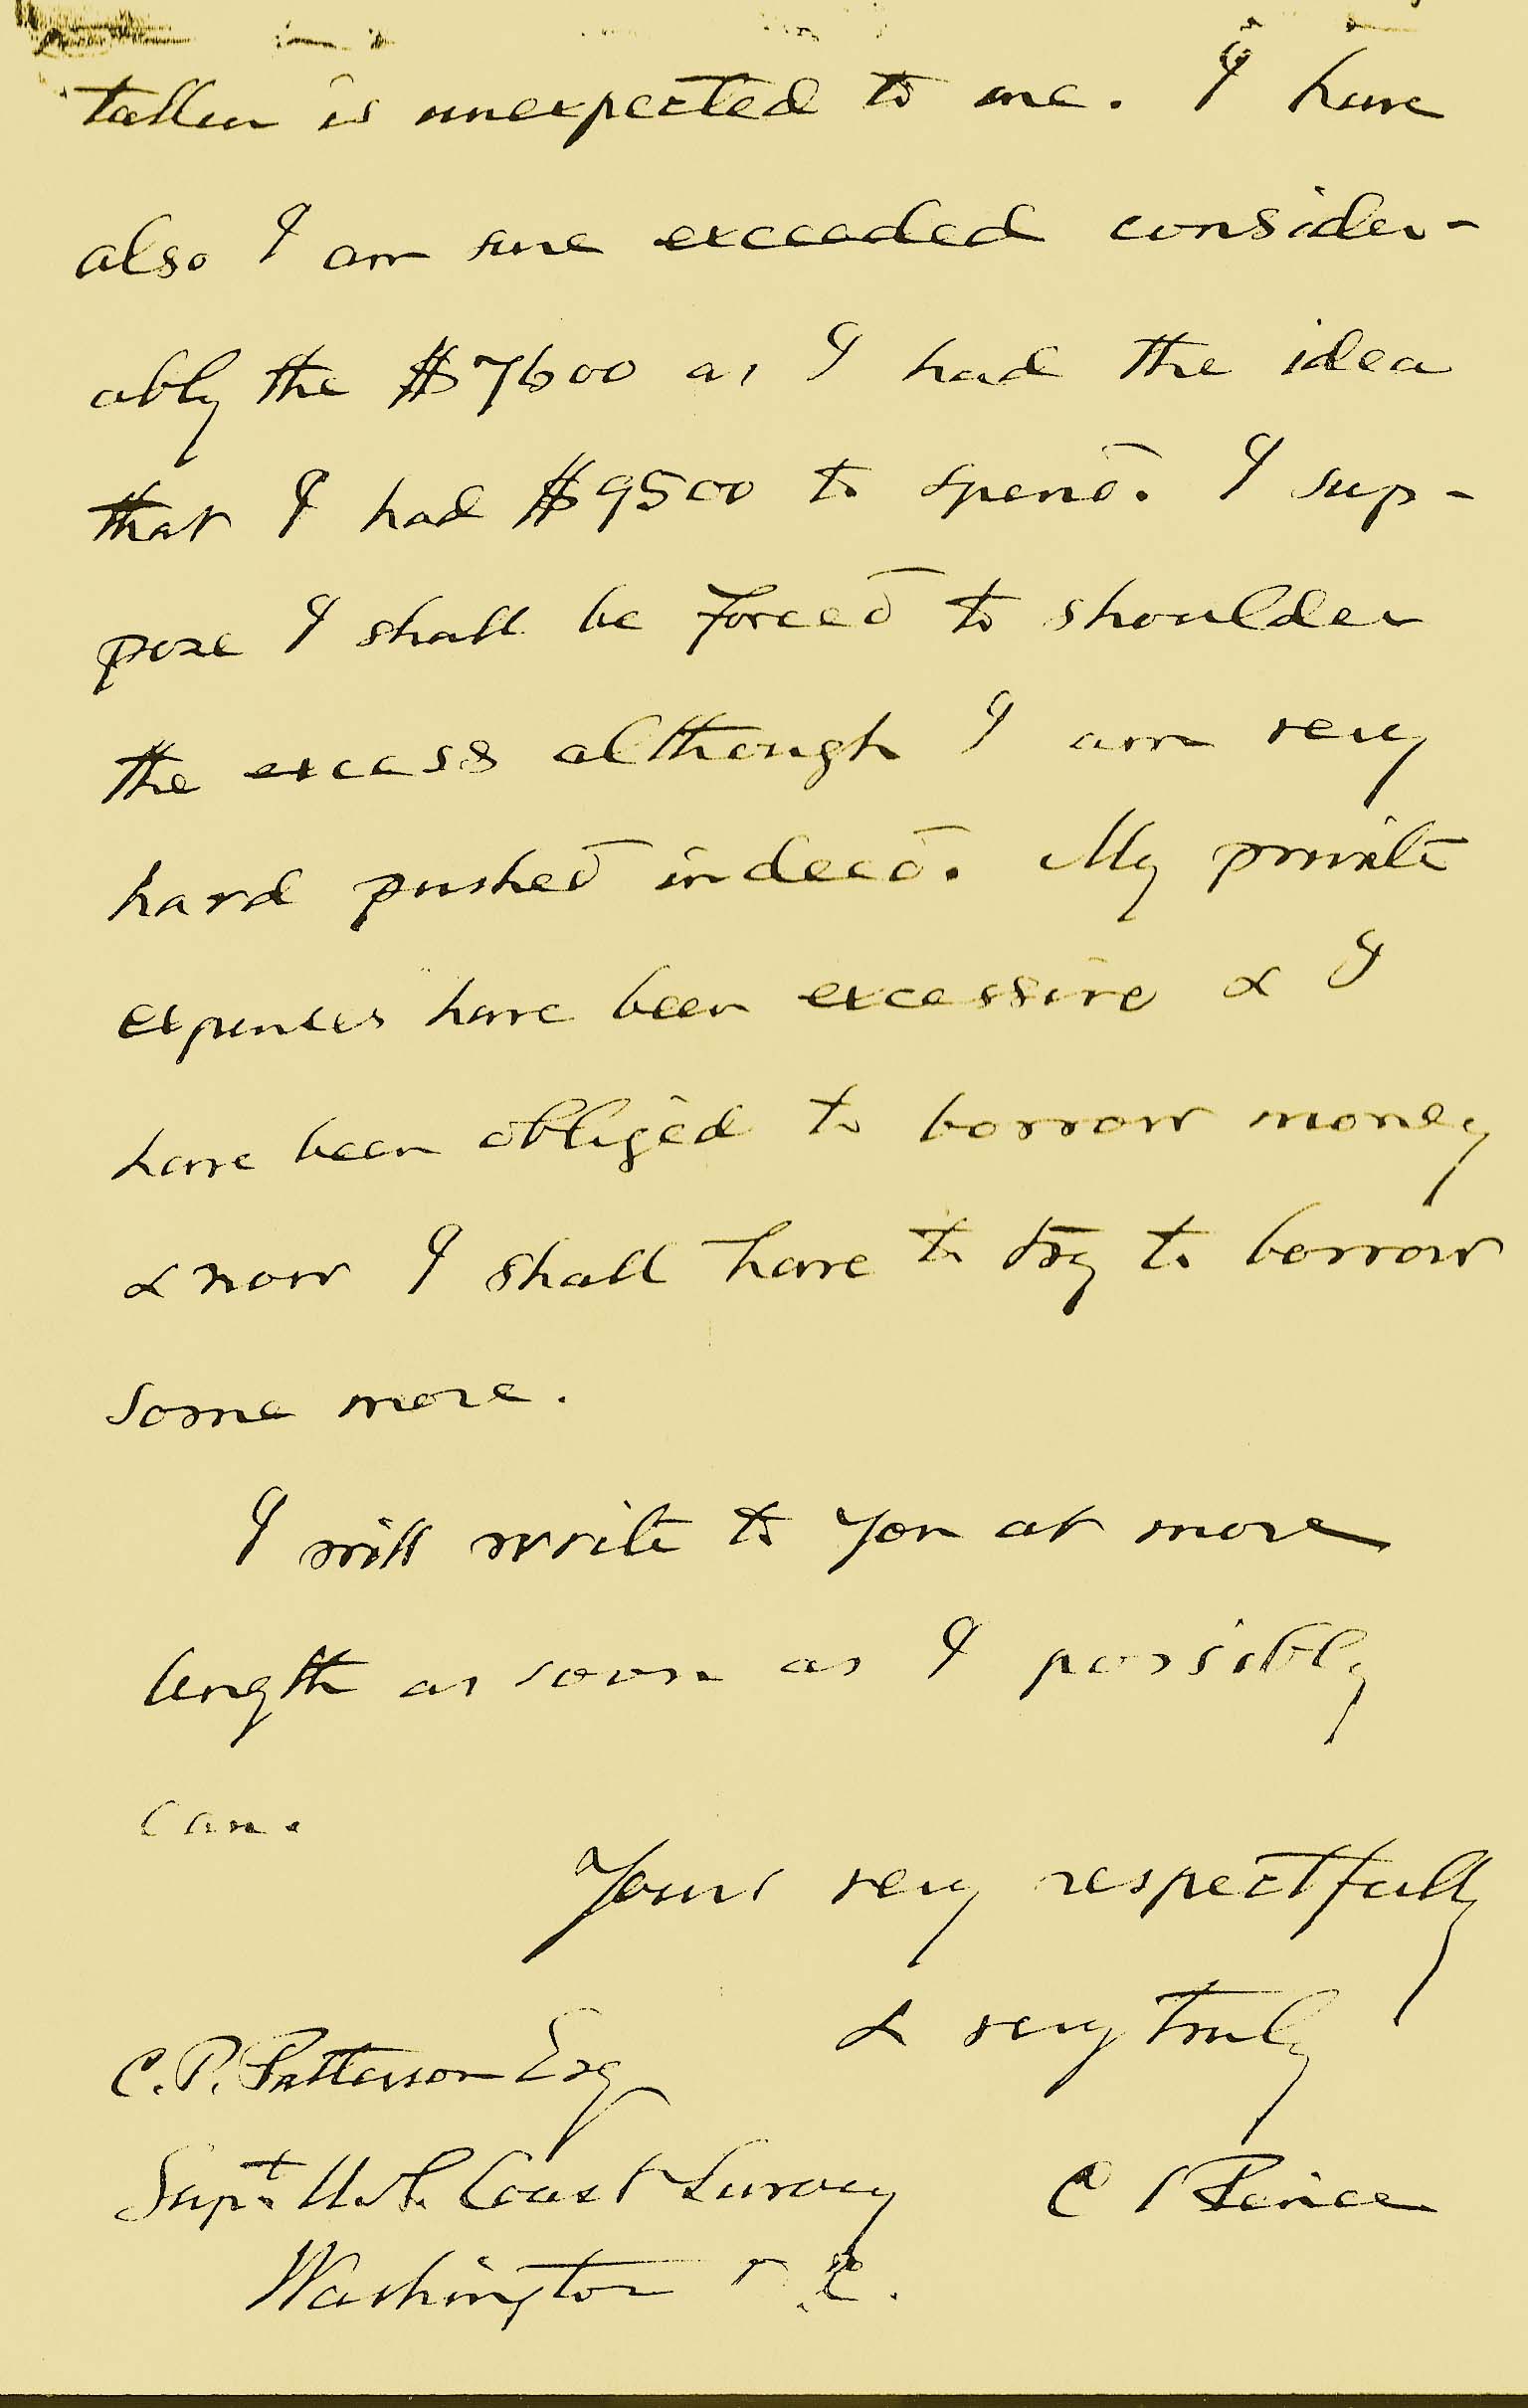 taken is unexpected to me. I have
also I am sure exceeded consider-
ably the $7600 as I had the idea
that I had $9500 to spend. I sup-
pose I shall be forced to shoulder
the excess although I am very
hard pushed indeed. My private
expenses have been excessive & I
have been obliged to borrow money
& now I shall have to try to borrow
some more.
I will write to you at more
length as soon as I possibly
can.
Yours very respectfully
& very truly
C. P. Patterson Esq
Supt. U.S. Coast Survey
C S Peirce
Washington D.C.